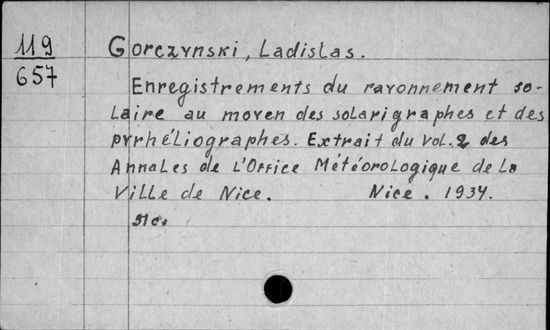 119
657
Gorczynski, Ladislas.
Enregistrements du rayonnement so-
laire au moyen des solarigraphes et des
pyrhéliographes. Extrait du vol. 2 des
Annales de l'Office Météorologique de la
Ville de Nice. Nice. 1934.